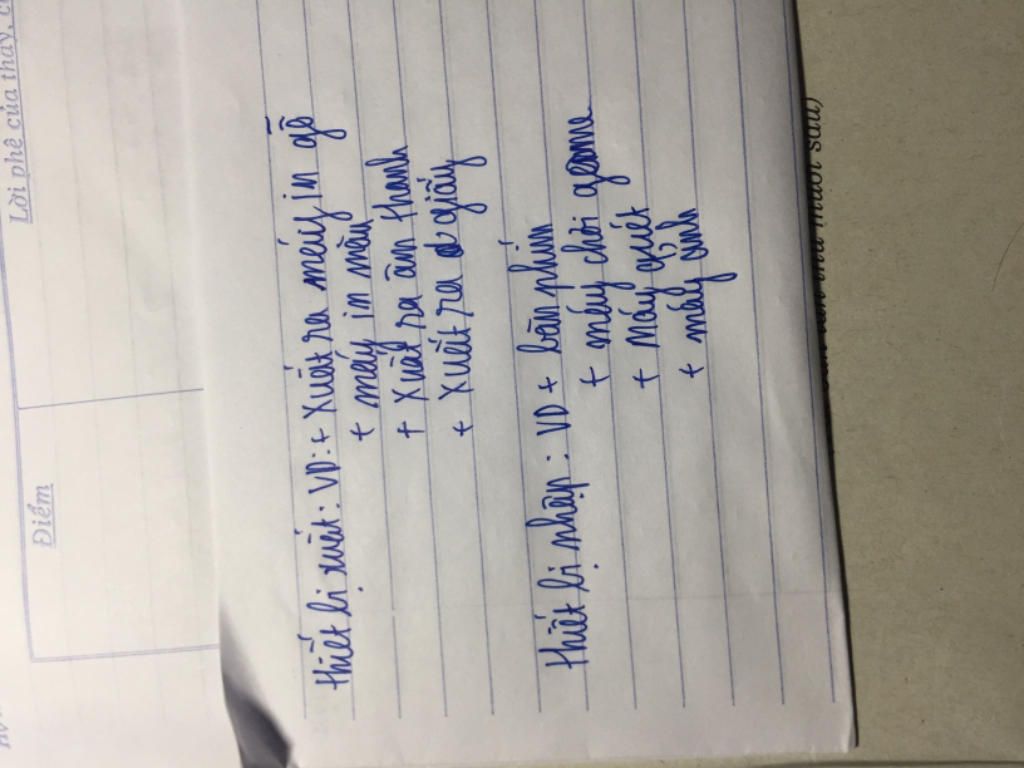 Lời phê của thầy, c
Điểm
thiết bị xuất: VD: + Xuất ra máy in gỗ
+ máy in màu
+ Xuất ra âm thanh
+ Xuất ra giấy
thiết bị nhập: VD + bàn phím
+ máy chơi game
+ máy quét
+ máy ảnh
sau)